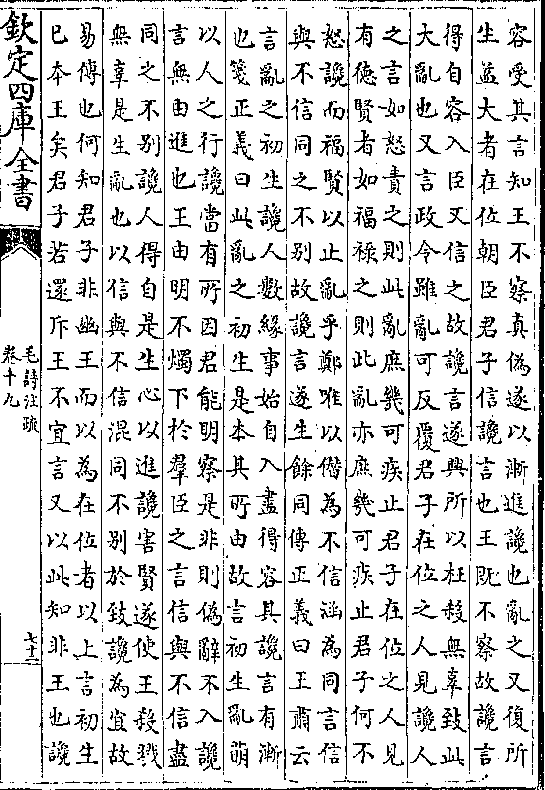 容受其言知王不察真偽遂以漸進讒也亂之又復所
生益大者在位朝臣君子信讒言也王既不察故讒言
得自容入臣又信之故讒言遂興所以枉殺無辜致此
大亂也又言政令雖亂可反覆君子在位之人見讒人
之言如怒責之則此亂庶幾可疾止君子在位之人見
有德賢者如福祿之則此亂亦庶幾可疾止君子何不
怒讒而福賢以止亂乎鄭唯以僭為不信涵為同言信
與不信同之不別故讒言遂生餘同傳正義曰王肅云
言亂之初生讒人數緣事始自入盡得容其讒言有漸
也箋正義曰此亂之初生是本其所由故言初生亂萌
以人之行讒當有所因君能明察是非則偽辭不入讒
言無由進也王由明不燭下於羣臣之言信與不信盡
同之不別讒人得自是生心以進讒害賢遂使王殺戮
無辜是生亂也以信與不信混同不別於致讒為宜故
易傳也何知君子非幽王而以為在位者以上言初生
已本王矣君子若還斥王不宜言又以此知非王也讒
欽定四庫全書
毛詩注疏
卷十九
七十二